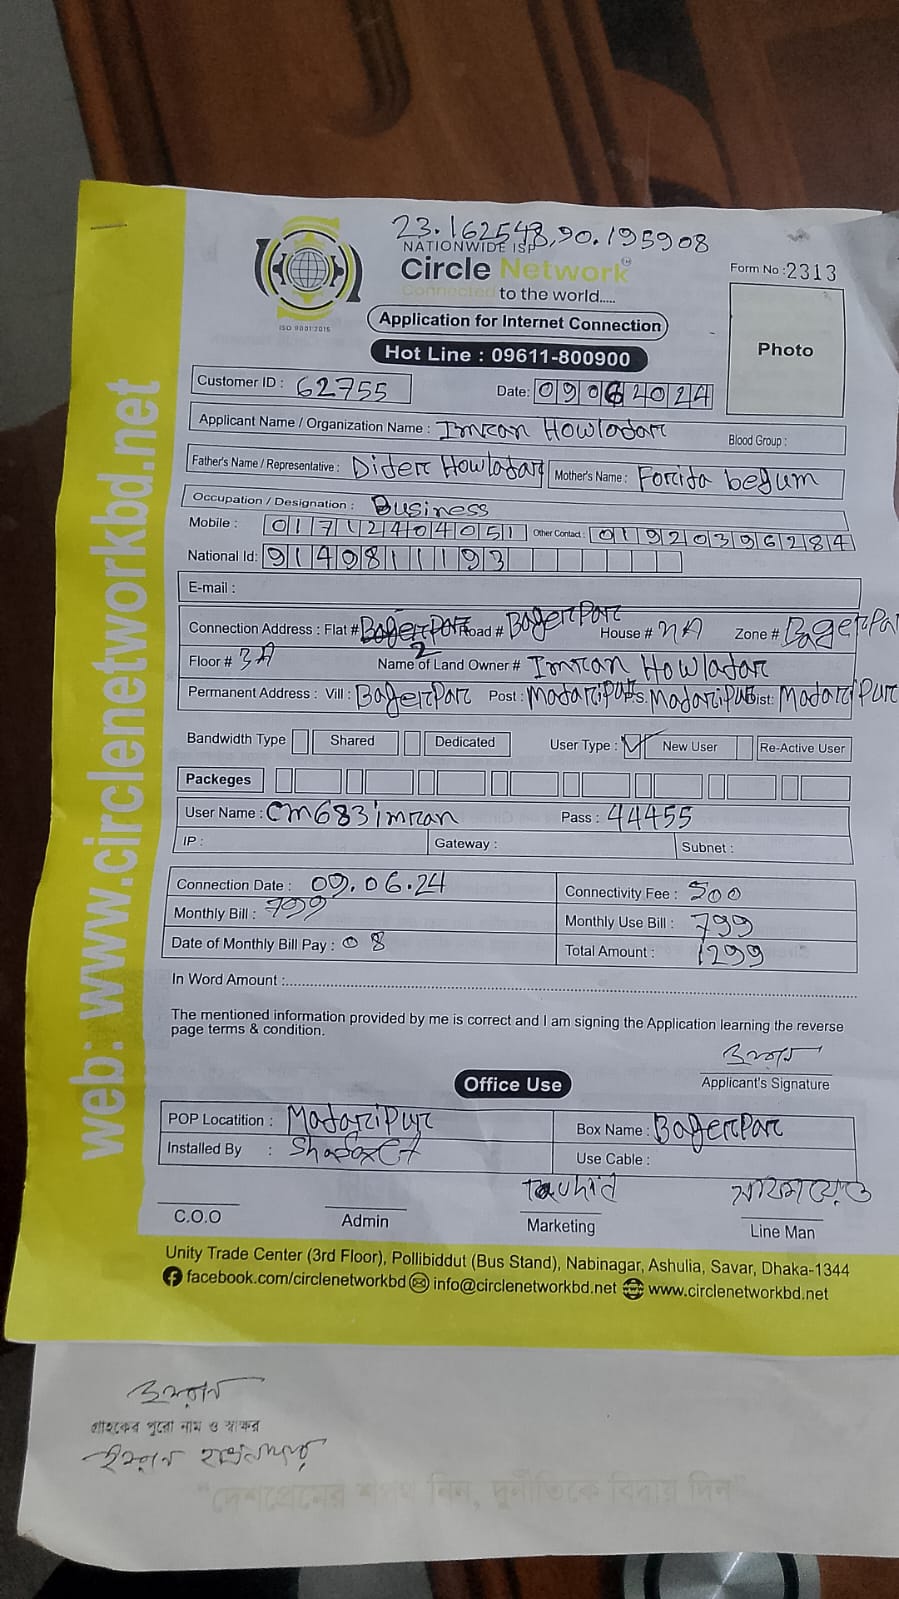 23.162548,90.195908
NATIONWIDE ISP
Circle Network
Connected to the world.....
Form No :2313
ISO 9001:2015
Application for Internet Connection
Hot Line : 09611-800900
Photo
Customer ID : 62755
Date: 09062024
Applicant Name / Organization Name : Imran Howladar
Blood Group :
Father's Name / Representative : Dider Howladar Mother's Name : Forida begum
Occupation / Designation : Business
Mobile : 01712404051 Other Contact : 01920396284
National Id: 9149811193
E-mail :
Connection Address : Flat # Road # BagerPar House # NA Zone # BagerPar
Floor # Name of Land Owner # Imran Howladar
Permanent Address : Vill : BagerPar Post : MadariPur P.S. MadariPur Dist: MadariPur
Bandwidth Type Shared Dedicated User Type : ✓ New User Re-Active User
Packeges
User Name : cm683imran Pass : 44455
IP : Gateway : Subnet :
Connection Date : 09.06.24 Connectivity Fee : 500
Monthly Bill : 799 Monthly Use Bill : 799
Date of Monthly Bill Pay : 08 Total Amount : 1299
In Word Amount :
The mentioned information provided by me is correct and I am signing the Application learning the reverse
page terms & condition.
ইমরান
Applicant's Signature
Office Use
POP Locatition : MadariPur Box Name : BagerPar
Installed By : Use Cable :
Tauhid
C.O.O Admin Marketing Line Man
Unity Trade Center (3rd Floor), Pollibiddut (Bus Stand), Nabinagar, Ashulia, Savar, Dhaka-1344
facebook.com/circlenetworkbd info@circlenetworkbd.net www.circlenetworkbd.net
web: www.circlenetworkbd.net
ইমরান
গ্রাহকের পুরো নাম ও স্বাক্ষর
ইমরান হাওলাদার
“দেশপ্রেমের শপথ নিন, দুর্নীতিকে বিদায় দিন”